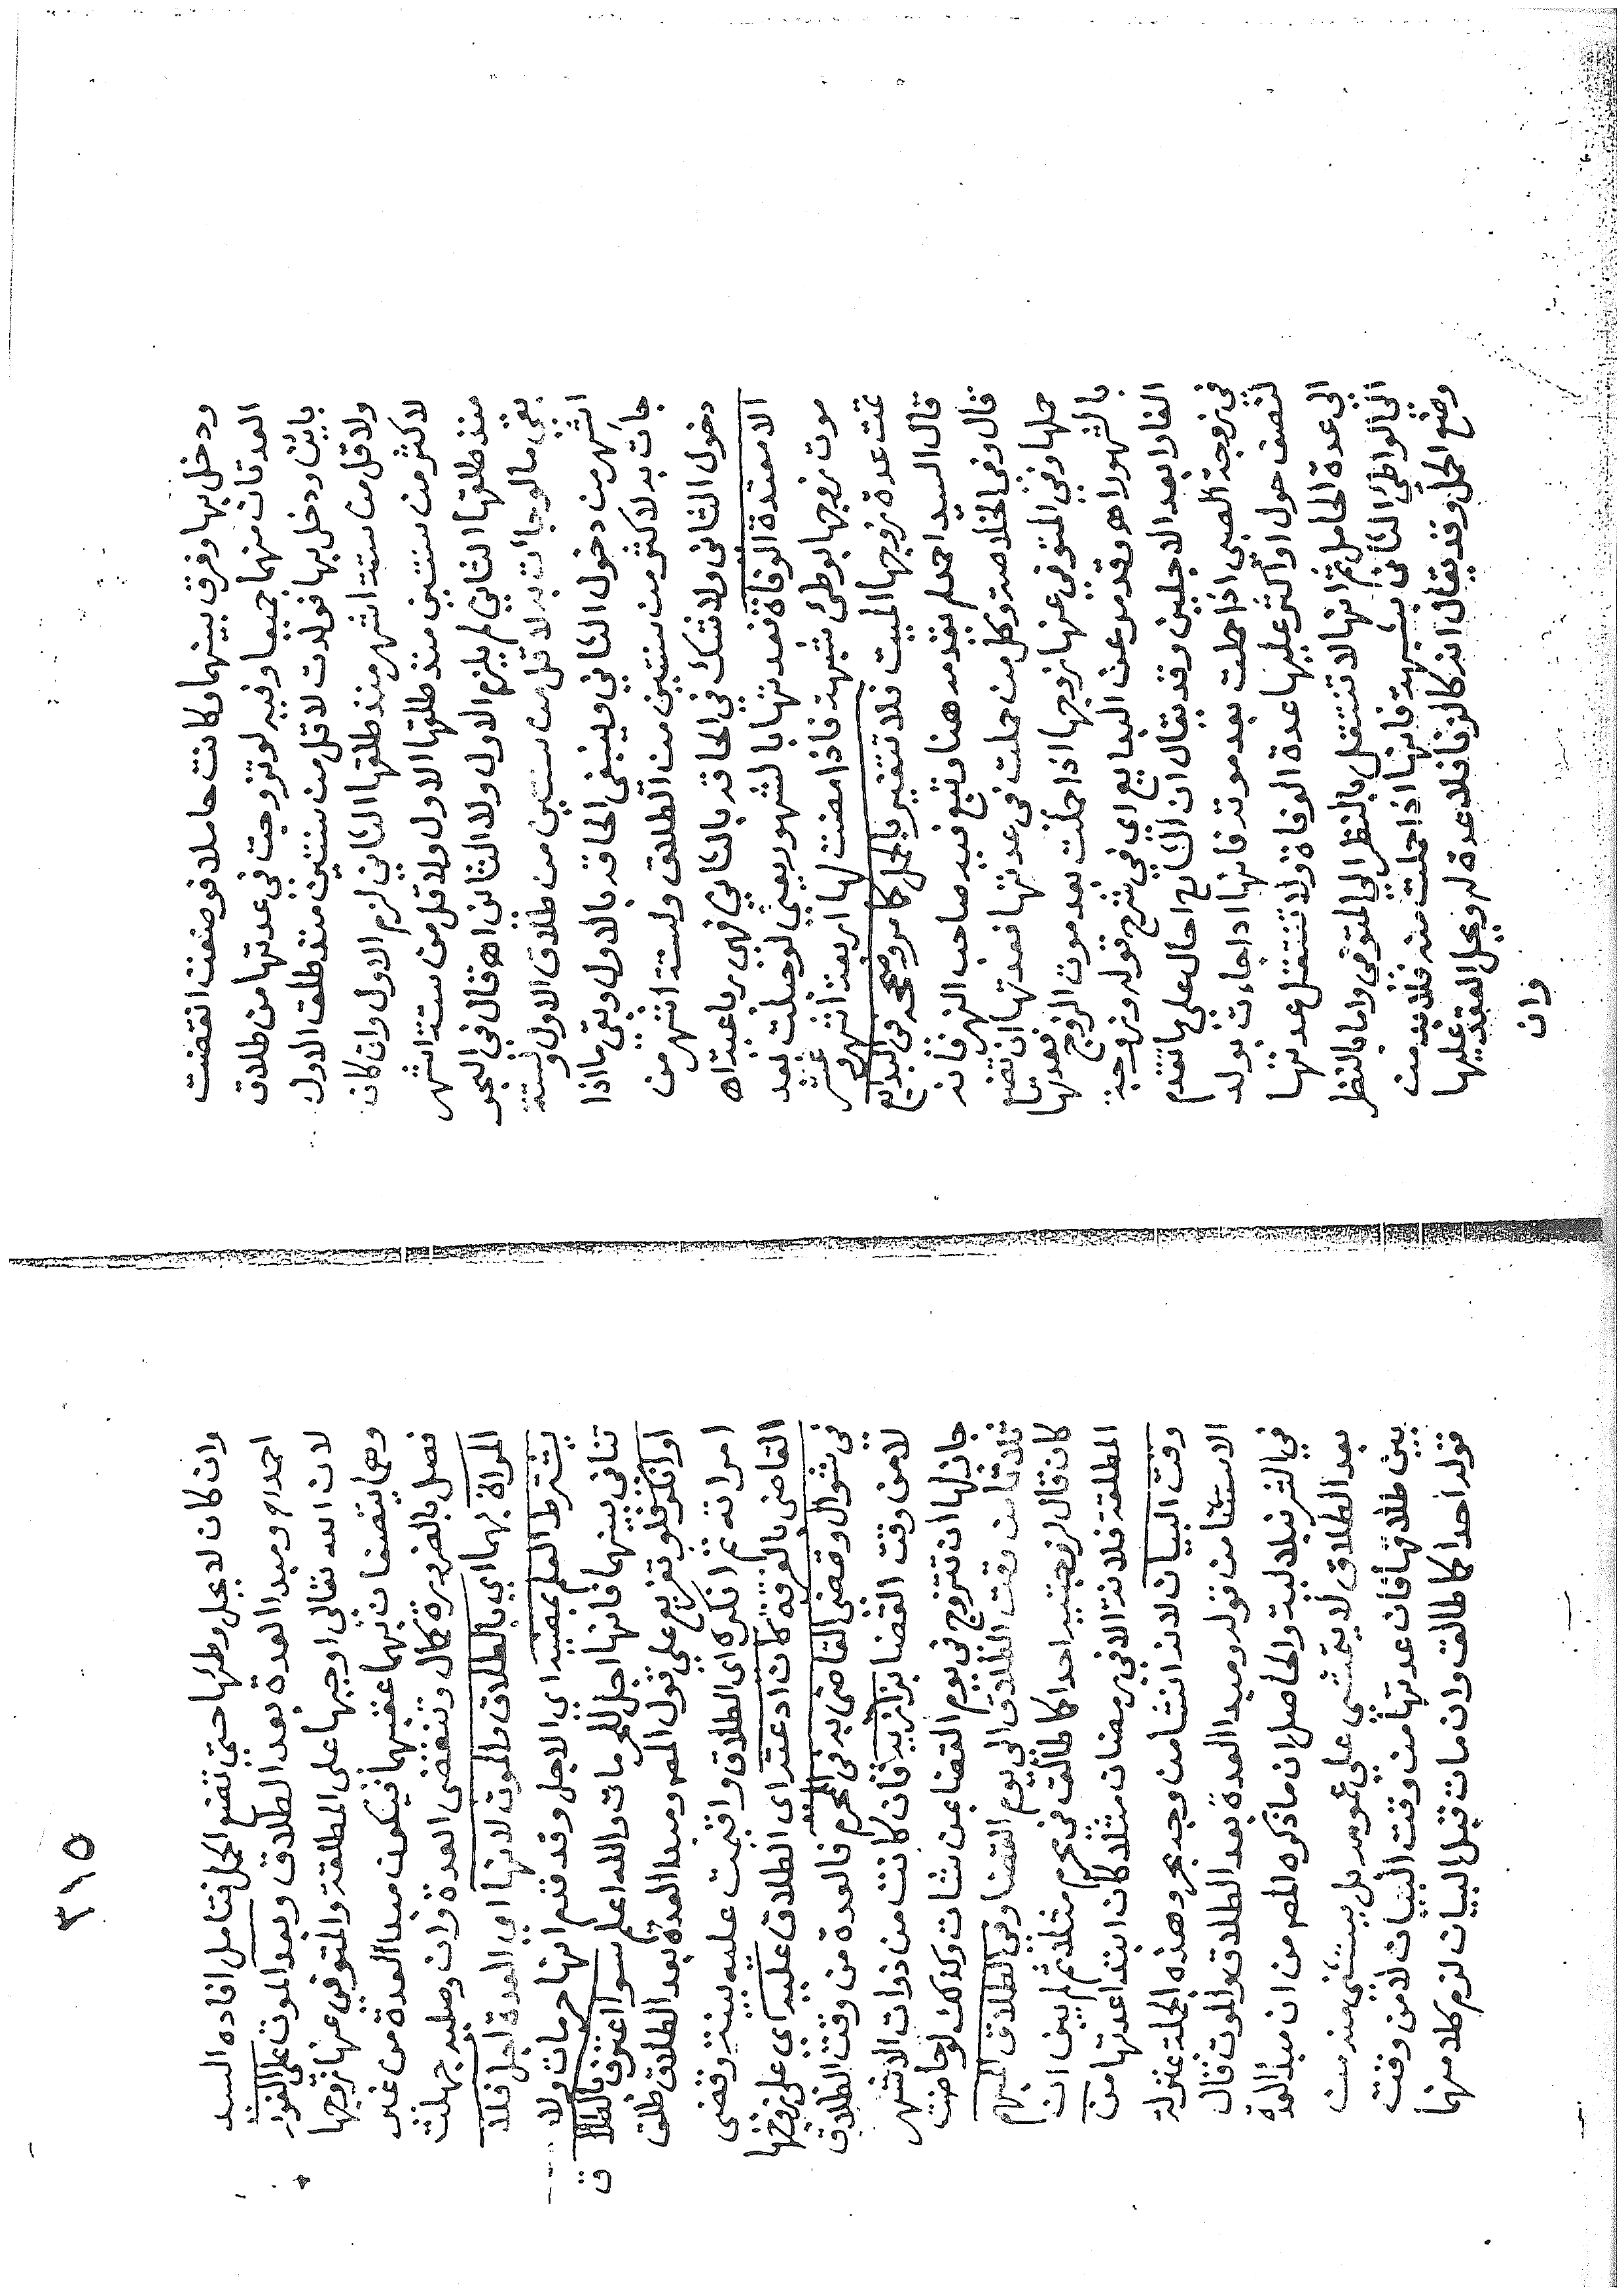 ودخل بها وفرق بينهما وكانت حاملا فوضعت انقضت
العدتان منهما جميعا وفيه لو تزوجت في عدتها من طلاق
بائن ودخل بها فولدت لاقل من سنتين منذ طلق الاول
ولاقل من ستة اشهر منذ طلقها الثاني لزم الاول وان كان
لاكثر من سنتين منذ طلقها الاول ولاقل من ستة اشهر
منذ طلقها الثاني لم يلزم الاول ولا الثاني اه قال في البحر
بقي ما لو جأت به لاقل من سنتين من طلاق الاول ولستة
اشهر من دخول الثاني وينبغي الحاقه بالاول وبقي ما اذا
جأت به لاكثر من سنتين من الطلاق ولستة اشهر من
دخول الثاني ولا شك في الحاقه بالثاني فهي رباعية اه
الا معتدة الوفاة فعدتها بالشهور يعني لو حبلت بعد
موت زوجها بوطئ شبهة فاذا مضت لها اربعة اشهر وعشر
تمت عدة زوجها الميت فلا تتغير بالحمل كما مر وصححه في البدايع
قال السيد احمد لم يقدمه هنا وتبع فيه صاحب النهر فانه
قال وفي الخلاصة وكل من حملت في عدتها فعدتها ان تضع
حملها وفي المتوفي عنها زوجها اذا حملت بعد موت الزوج فعدتها
بالشهور اه وقدمه عن البدايع اي في شرح قوله وزوجة
الفار ابعد الاجلين وقد يقال ان الشارح احال على ما تقدم
في زوجة الصبي اذا حملت بعد موته فانها اذا جاءت بولد
لنصف حول او اكثر عليها عدة الوفاة ولا تنتقل عدتها
الى عدة الحامل ثم انها لا تنتقل بالنظر الى المتوفي واما بالنظر
الى الواطئ الثاني بشبهة فانها اذا حملت منه فلا بد من
وضع الحمل وقد يقال انه كالزنا فلا عدة له ويحل العقد عليها
وان
٣١٥
وان كان لا يحل وطئها حتى تضع الحمل فتامل افاده السيد
احمد اه ومبدا العدة بعد الطلاق وبعد الموت على الفور
لان الله تعالى اوجبها على المطلقة والمتوفي عنها زوجها
وهما يتصفان بهما عقبهما فيكون مبدا العدة من غير
فصل بالضرورة كمال وتنقضي العدة وان وصلية جهلت
المراة بهما اي بالطلاق والموت لانها اي العدة اجل فلا
يشترط العلم بمضيه اي الاجل وقد قدم انها حرمات ولا
تنافي بينهما فانها اجل للحرمات والله اعلم سوا اعترف بالطلاق
او انكر فلو تفريع على قول المصـ ومبدا العدة بعد الطلاق طلق
امراته ثم انكره اي الطلاق واقيمت عليه بينة وقضى
القاضي بالفرقة كان ادعته اي الطلاق عليه اي على زوجها
في شوال وقضى القاضي به في المحرم فالعدة من وقت الطلاق
لا من وقت القضا بزازية فان كانت من ذوات الاشهر
جاز لها ان تتزوج في يوم القضا عن شات وكذلك لو حاضت
ثلاثا من وقت الطلاق الى يوم القضا وفي الطلاق المبهم
كان قال لزوجتيه احداكما طالق في محرم مثلا ثم لم يبين ان
المطلقة فلانة الا في رمضان مثلا كان ابتدا عدتها من
وقت البيان لانه انشا من وجه بحر وهذه الجملة بمنزلة
الاستثنا من قوله ومبدا العدة بعد الطلاق والموت فقال
في الشرنبلالية والحاصل ان ما ذكره المصـ من ان مبدا العدة
بعد الطلاق لا يتمشى على عمومه بل يستثنى منه من
بين طلاقها فان عدتها من وقت البيان لا من وقت
قوله احداكما طالق وان مات قبل البيان لزم كلا منهما